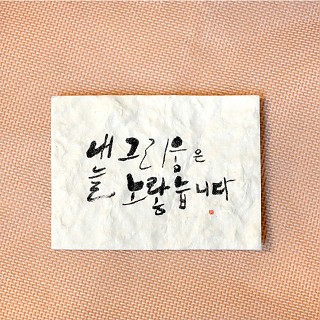 내 그리움은
늘 노랗습니다